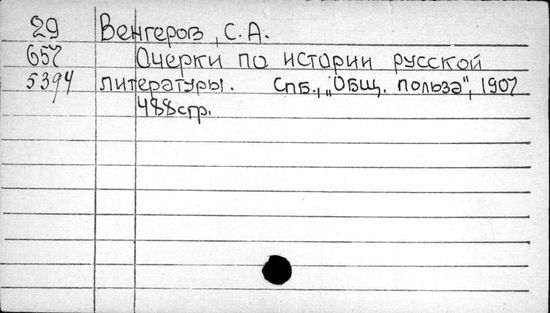 29 Венгеров, С.А.
657 Очерки по истории русской
5394 литературы. Спб., „Общ. польза", 1907
488стр.